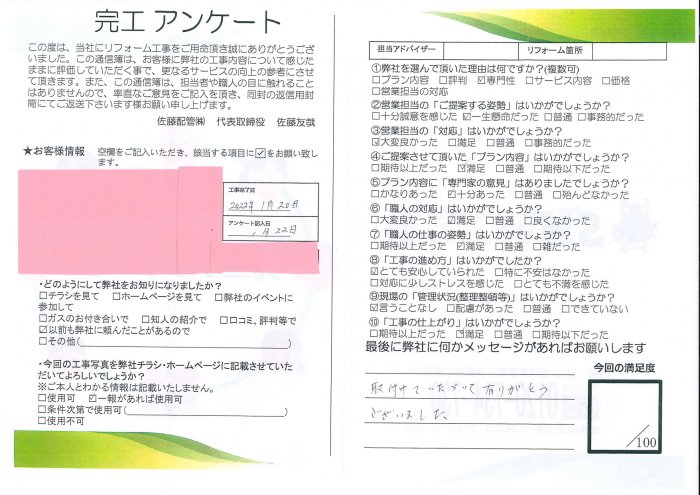 完工 アンケート
この度は、当社にリフォーム工事をご用命頂き誠にありがとうござ
いました。この通信簿は、お客様に弊社の工事内容について感じた
ままに評価していただく事で、更なるサービスの向上の参考にさせ
て頂きます。また、この通信簿は、担当者や職人の目に触れることは
ありませんので、率直なご意見をご記入を頂き、同封の返信用封
筒にてご返送下さいます様お願い申し上げます。
佐藤配管㈱ 代表取締役 佐藤友哉
★お客様情報 空欄をご記入いただき、該当する項目に☑をお願い致し
ます。
工事完了日
2022年1月20日
アンケート記入日
1月22日
・どのようにして弊社をお知りになりましたか?
□チラシを見て □ホームページを見て □弊社のイベントに
参加して
□ガスのお付き合いで □知人の紹介で □口コミ、評判等で
☑以前も弊社に頼んだことがあるので
□その他( )
・今回の工事写真を弊社チラシ・ホームページに記載させていた
だいてよろしいでしょうか?
※ご本人とわかる情報は記載いたしません。
□使用可 ☑一報があれば使用可
□条件次第で使用可( )
□使用不可
担当アドバイザー リフォーム箇所
①弊社を選んで頂いた理由は何ですか?(複数可)
□プラン内容 □評判 ☑専門性 □サービス内容 □価格
□営業担当の対応
②営業担当の「ご提案する姿勢」はいかがでしょうか?
□十分誠意を感じた ☑一生懸命だった □普通 □事務的だった
③営業担当の「対応」はいかがでしょうか?
☑大変良かった □満足 □普通 □事務的だった
④ご提案させて頂いた「プラン内容」はいかがでしょうか?
□期待以上だった ☑満足 □普通 □期待以下だった
⑤プラン内容に「専門家の意見」はありましたでしょうか?
□かなりあった ☑十分あった □普通 □殆んどなかった
⑥「職人の対応」はいかがでしょうか?
□大変良かった ☑満足 □普通 □良くなかった
⑦「職人の仕事の姿勢」はいかがでしょうか?
□期待以上だった ☑満足 □普通 □雑だった
⑧「工事の進め方」はいかがでしたか?
☑とても安心していられた □特に不安はなかった
□対応に少しストレスを感じた □とても不満を感じた
⑨現場の「管理状況(整理整頓等)」はいかがでしょうか?
☑言うことなし □配慮があった □普通 □できていない
⑩「工事の仕上がり」はいかがでしょうか?
□期待以上だった ☑満足 □普通 □期待以下だった
最後に弊社に何かメッセージがあればお願いします
取付けていただいて有りがとう
ございました
今回の満足度
/100